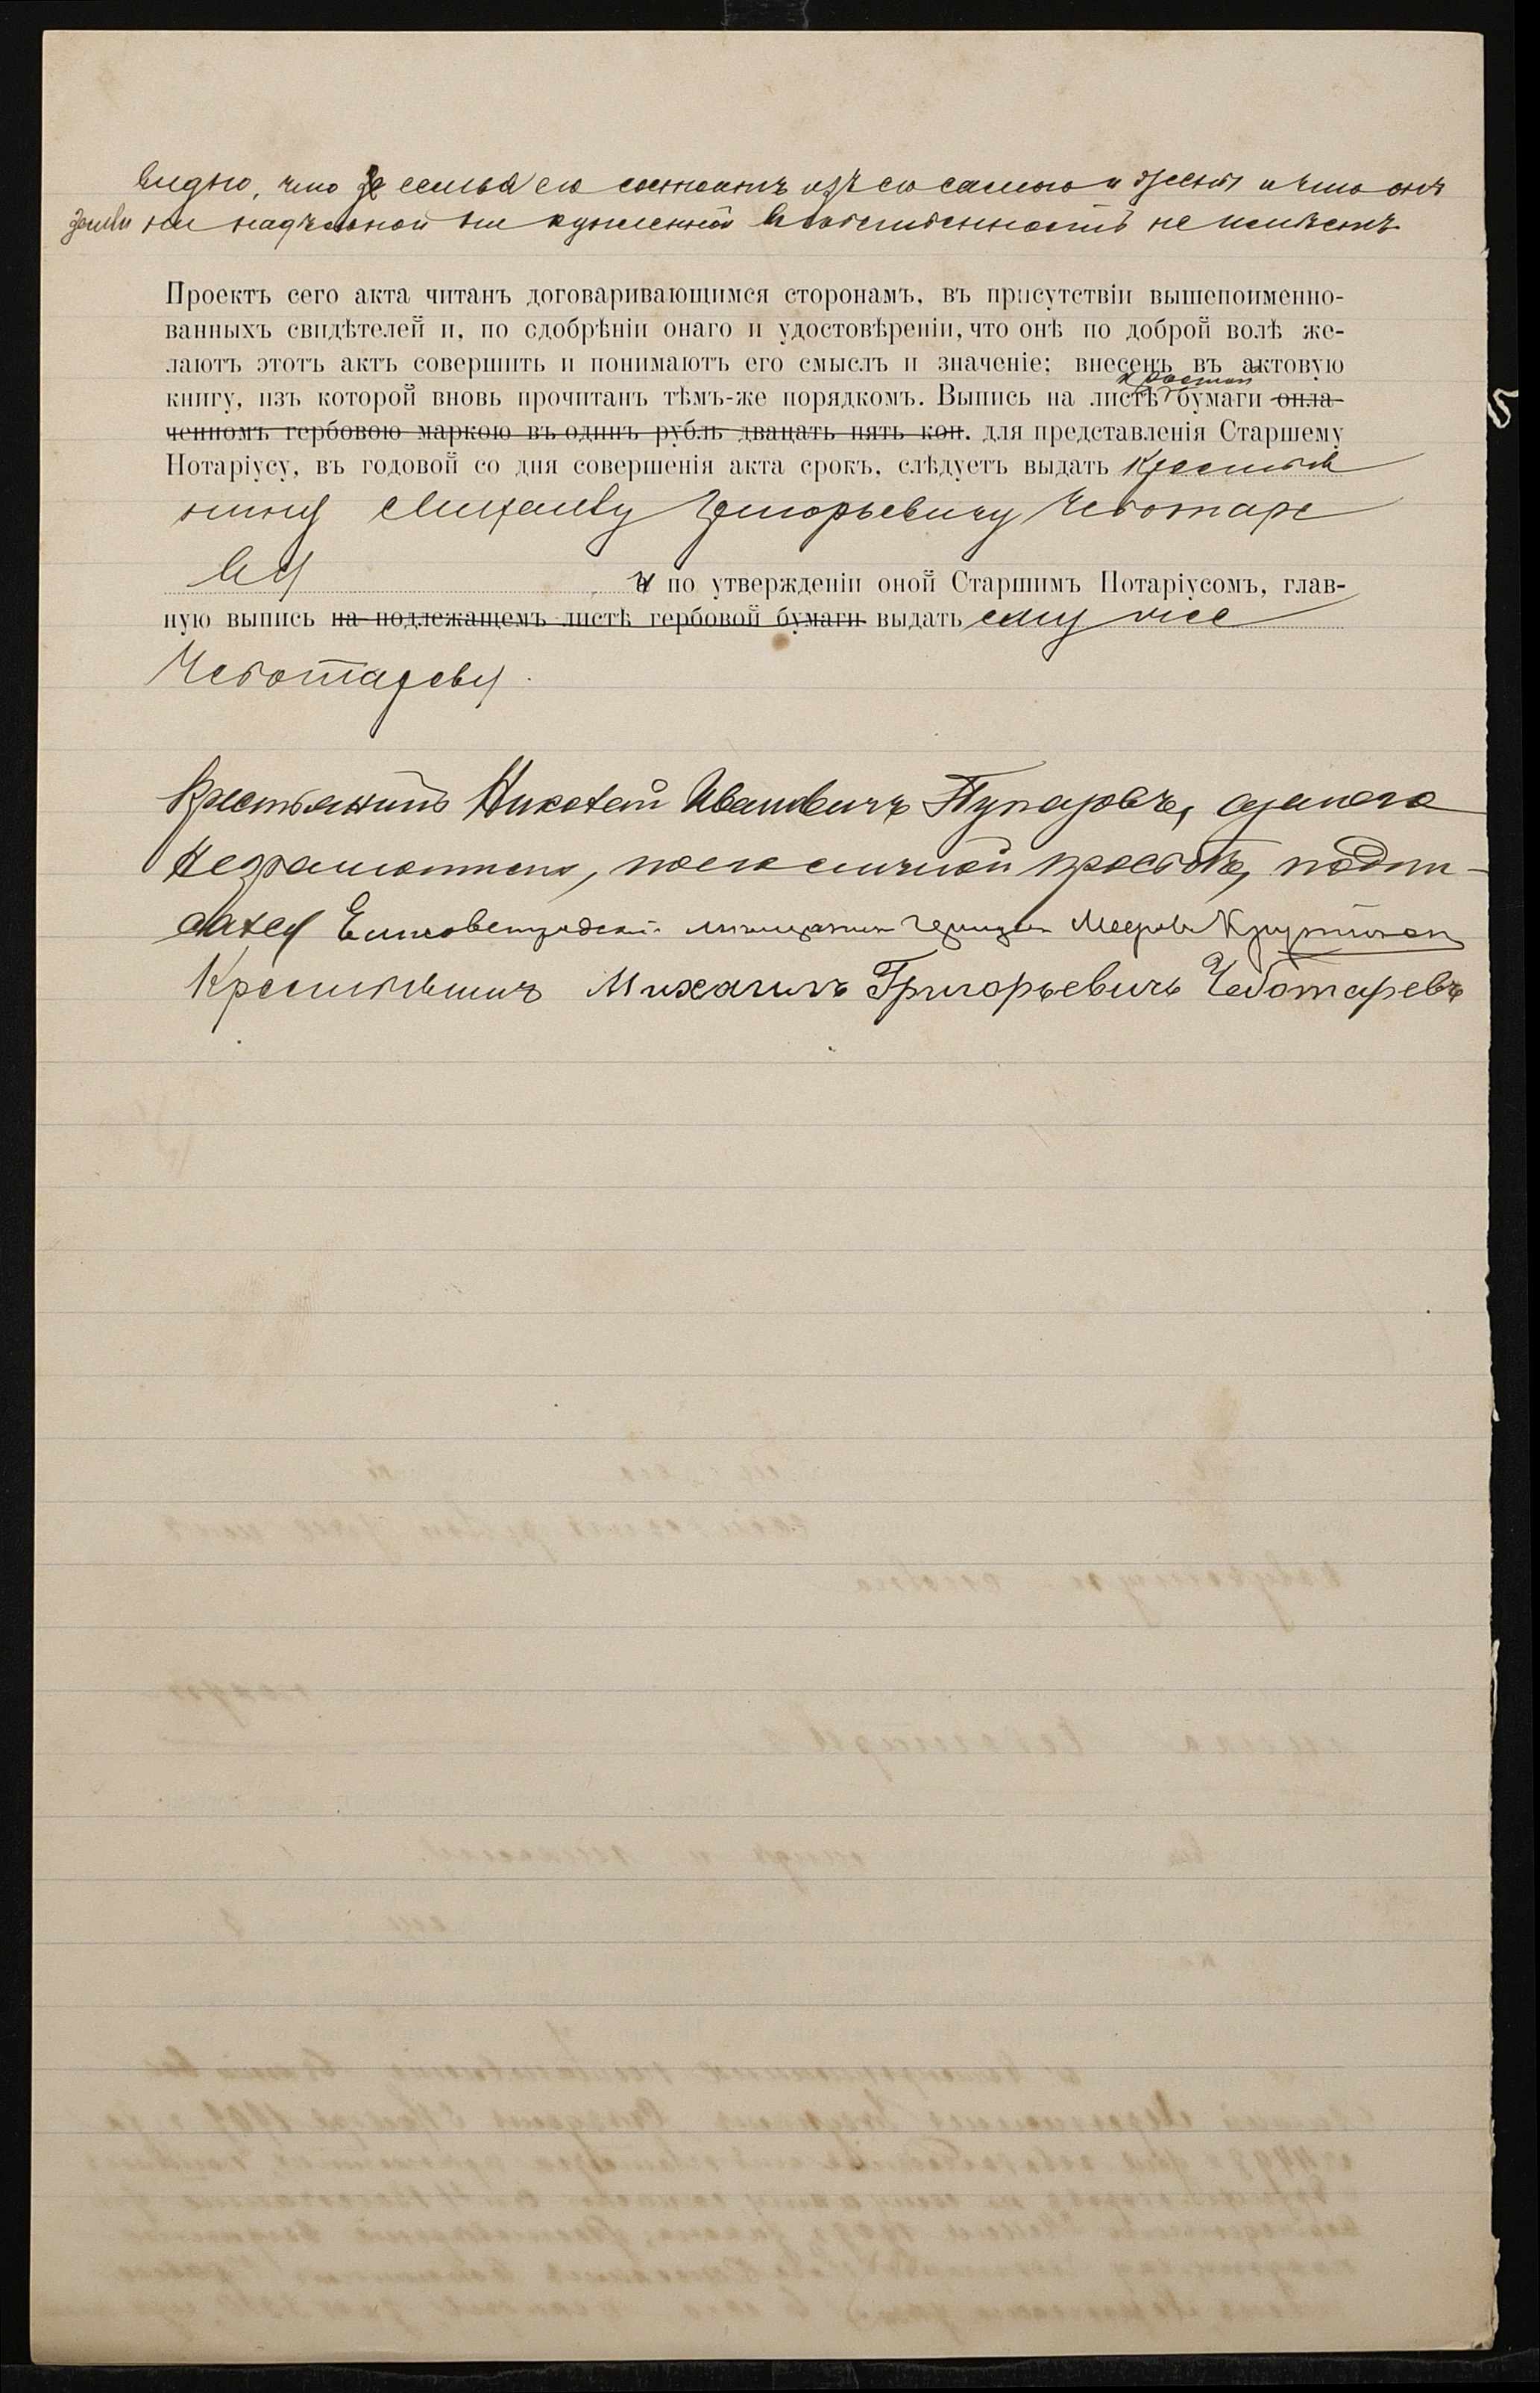 видно, что семья его состоитъ изъ его самого и жены и что онъ
земли ни надѣльной ни купленной въ собственность не имѣетъ
Проектъ сего акта читанъ договаривающимся сторонамъ, въ присутствіи вышепоименно-
ванныхъ свидѣтелей и, по одобрѣніи онаго и удостовѣреніи, что онѣ по доброй волѣ же-
лаютъ этотъ актъ совершить и понимаютъ его смыслъ и значеніе; внесенъ въ актовую
простой
книгу, изъ которой вновь прочитанъ тѣмъ-же порядкомъ. Выпись на листѣ бумаги опла-
ченномъ гербовою маркою въ одинъ рубль двацать пять коп. для представленія Старшему
Нотаріусу, въ годовой со дня совершенія акта срокъ, слѣдуетъ выдать крестья
нину Михаилу Григорьевичу Чеботаре
ву
и по утвержденіи оной Старшимъ Нотаріусомъ, глав-
ную выпись на подлежащемъ листѣ гербовой бумаги выдать ему же
Чеботареву.
Крестьянинъ Николай Ивановичъ а за него
неграмотнаго, по его личной просьбѣ, подпи-
сался Елисаветградскій мѣщанинъ
Крестьянинъ Михаилъ Григорьевичъ Чеботаревъ